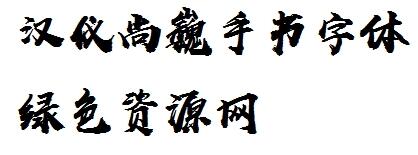 汉仪尚巍手书字体
绿色资源网